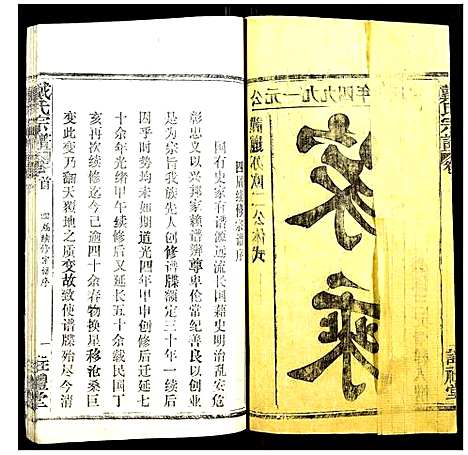 公元一九九四年
家乘
戴氏宗譜
註禮堂
四屆續修宗譜序
國有史家有譜源远流长国籍史明治乱安危
彰忠义以兴邦家赖谱辨尊卑伦常纪善良以创业
为宗旨我族先人创修谱牒额定三十年一续后
因于时势均未如期道光四年甲申创修后迁延七
十余年光绪甲午续修后又延长五十余载民国丁
亥再次续修迄今已逾四十余春物换星移沧桑巨
变此变乃翻天覆地之质变故致使谱牒殆尽今清
戴氏宗譜
首
四屆续修宗谱序
一
註禮堂